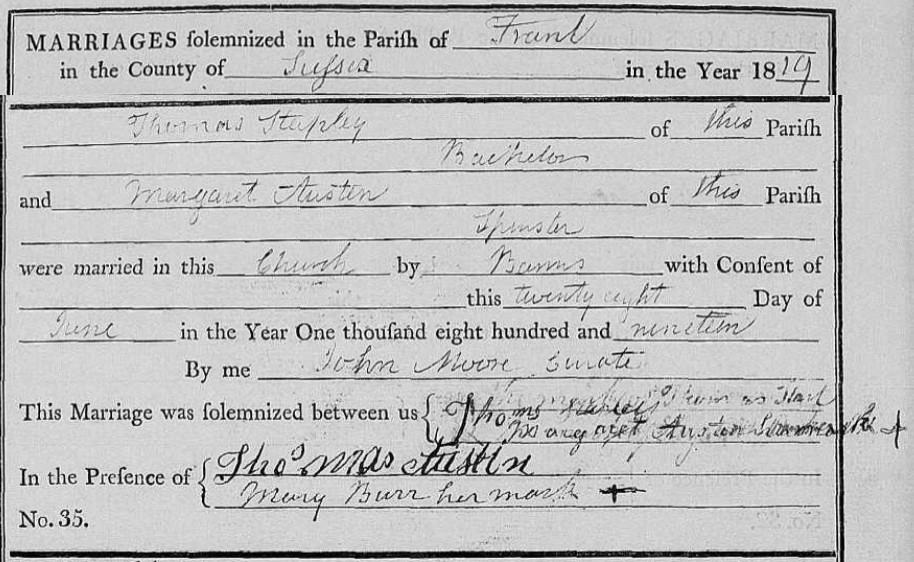 MARRIAGES solemnized in the Parish of Frant
in the County of Sussex in the Year 1819
Thomas Stapley of this Parish
Bachelor
and Margaret Austen of this Parish
Spinster
were married in this Church by Banns with Consent of
this twenty eight Day of
June in the Year One thousand eight hundred and nineteen
By me John Moore Curate
This Marriage was solemnized between us { Thoms
Margaret Austen
In the Presence of { Thomas Austin
Mary Burr her mark +
No. 35.